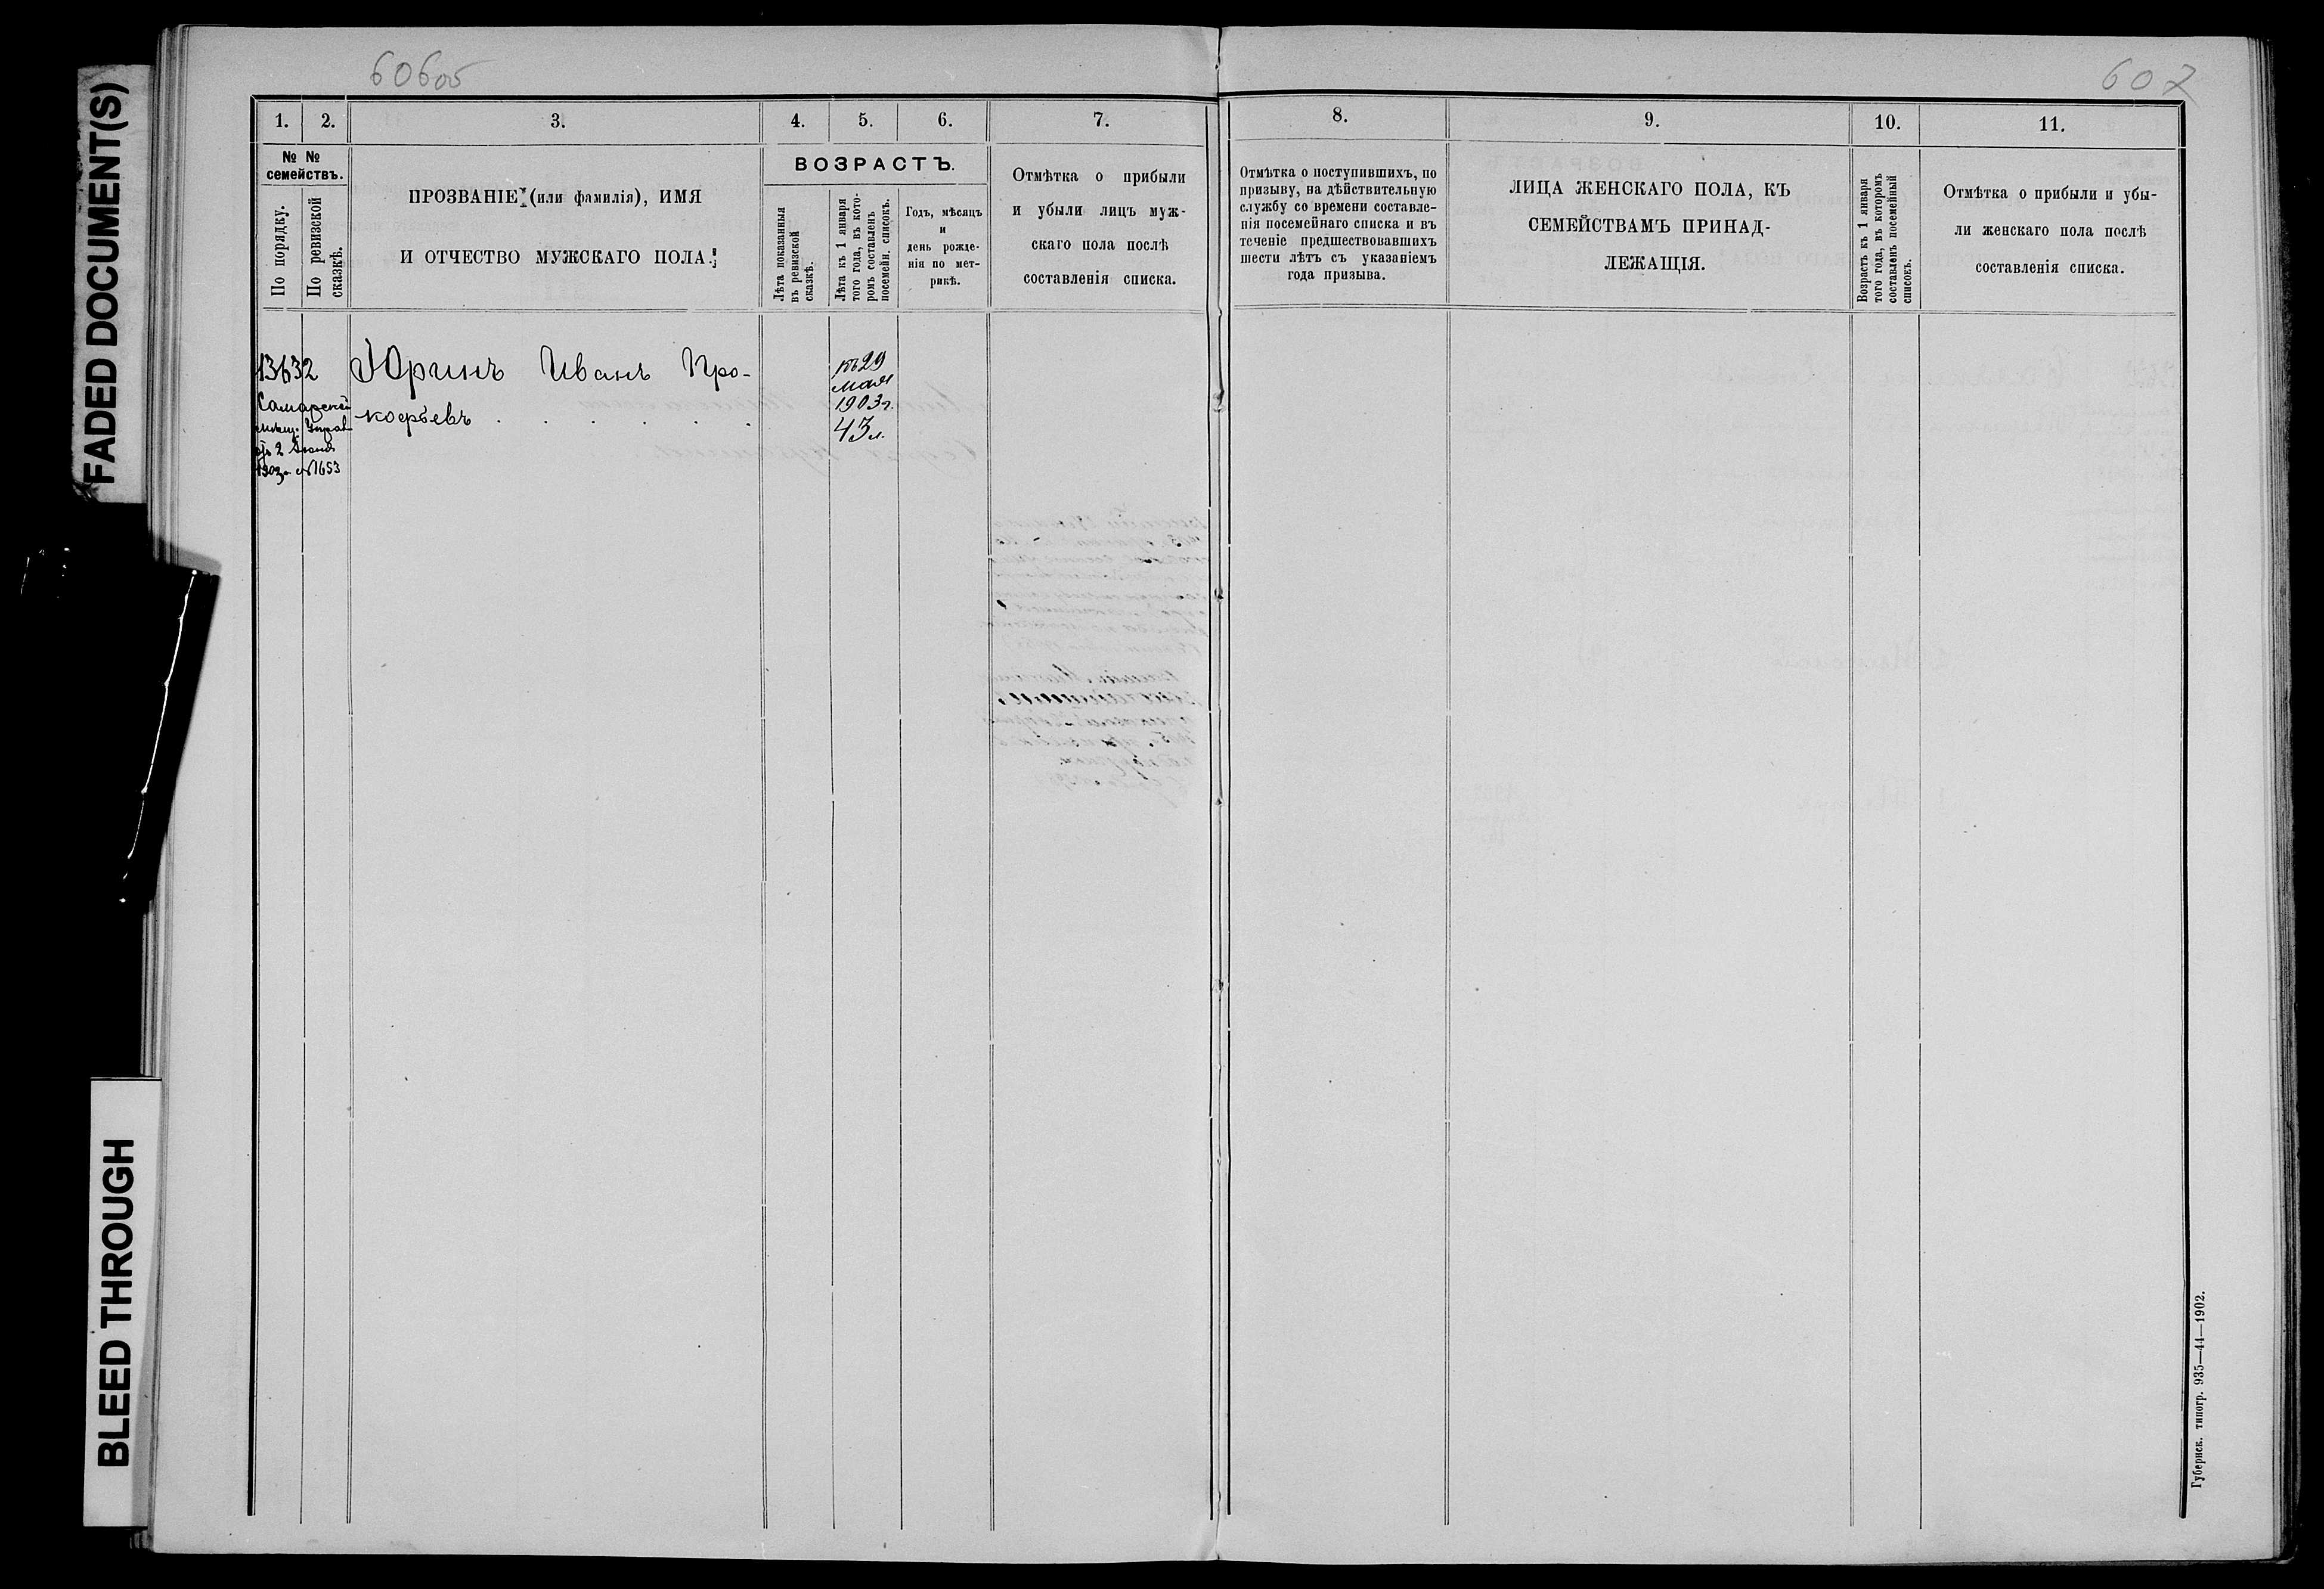 FADED DOCUMENT(S)
BLEED THROUGH
606об
607
1. 2. 3. 4. 5. 6. 7.
№ №
семействъ.
По порядку.
По ревизской
сказкѣ.
ПРОЗВАНІЕ (или фамилія), ИМЯ
И ОТЧЕСТВО МУЖСКАГО ПОЛА.
ВОЗРАСТЪ.
Лѣта показанныя
въ ревизской
сказкѣ.
Лѣта къ 1 января
того года, въ кото-
ромъ составленъ
посемейн. списокъ.
Годъ, мѣсяцъ
и
день рожде-
нія по мет-
рикѣ.
Отмѣтка о прибыли
и убыли лицъ муж-
скаго пола послѣ
составленія списка.
8. 9. 10. 11.
Отмѣтка о поступившихъ, по
призыву, на дѣйствительную
службу со времени составле-
нія посемейнаго списка и въ
теченіе предшествовавшихъ
шести лѣтъ съ указаніемъ
года призыва.
ЛИЦА ЖЕНСКАГО ПОЛА, КЪ
СЕМЕЙСТВАМЪ ПРИНАД-
ЛЕЖАЩІЯ.
Возрастъ къ 1 января
того года, въ которомъ
составленъ посемейный
списокъ.
Отмѣтка о прибыли и убы-
ли женскаго пола послѣ
составленія списка.
13632
Самарской
мѣщ. Управ
отъ 2 Іюня
1903 г. №1653
Юринъ Иванъ Про-
кофьевъ . . . . . .
къ 29
мая
1903 г.
43 л.
Губернск. типогр. 935—44—1902.